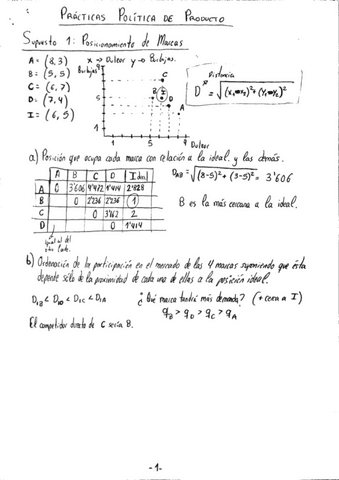 PRÁCTICAS POLÍTICA DE PRODUCTO
Supuesto 1: Posicionamiento de Marcas
A = (8, 3) x → Dulzor y → Burbujas.
B = (5, 5)
C = (6, 7)
D = (7, 4)
I = (6, 5)
Burbujas
9
5
1
1 5 9 Dulzor
C
B I
D
A
Distancia
a) Posición que ocupa cada marca con relación a la ideal y las demás.
A B C D Ideal
A 0 3'606 4'472 1'414 2'828
B 0 2'236 2'236 1
C 0 3'162 2
D 0 1'414
Igual al del otro lado.
D_AB = √(8-5)² + (3-5)² = 3'606
B es la más cercana a la ideal.
b) Ordenación de la participación en el mercado de las 4 marcas suponiendo que ésta
depende sólo de la proximidad de cada una de ellas a la posición ideal.
D_IB < D_ID < D_IC < D_IA
¿Qué marca tendrá más demanda? (+ cerca a I)
q_B > q_D > q_C > q_A
El competidor directo de C sería B.
-1-